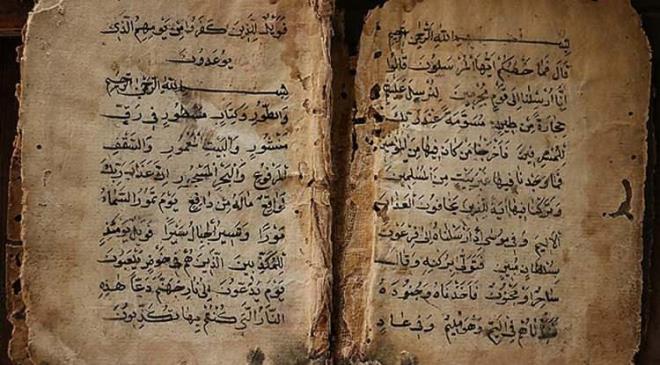 بسم الله الرحمن الرحيم
قال فما خطبكم ايها المرسلون قالوا
انا ارسلنا الى قوم مجرمين لنرسل عليهم
حجارة من طين مسومة عند ربك
للمسرفين فاخرجنا من كان فيها من المومنين
فما وجدنا فيها غير بيت من المسلمين
وتركنا فيها اية للذين يخافون العذاب
الاليم وفي موسى اذ ارسلناه الى فرعون
بسلطان مبين فتولى بركنه وقال
ساحر او مجنون فاخذناه وجنوده
فنبذناهم في اليم وهو مليم وفي عاد
فويل للذين كفروا من يومهم الذي
يوعدون
بسم الله الرحمن الرحيم
والطور وكتاب مسطور في رق
منشور والبيت المعمور والسقف
المرفوع والبحر المسجور ان عذاب ربك
لواقع ماله من دافع يوم تمور السماء
مورا وتسير الجبال سيرا فويل يومئذ
للمكذبين الذين هم في خوض يلعبون
يوم يدعون الى نار جهنم دعا هذه
النار التي كنتم بها تكذبون